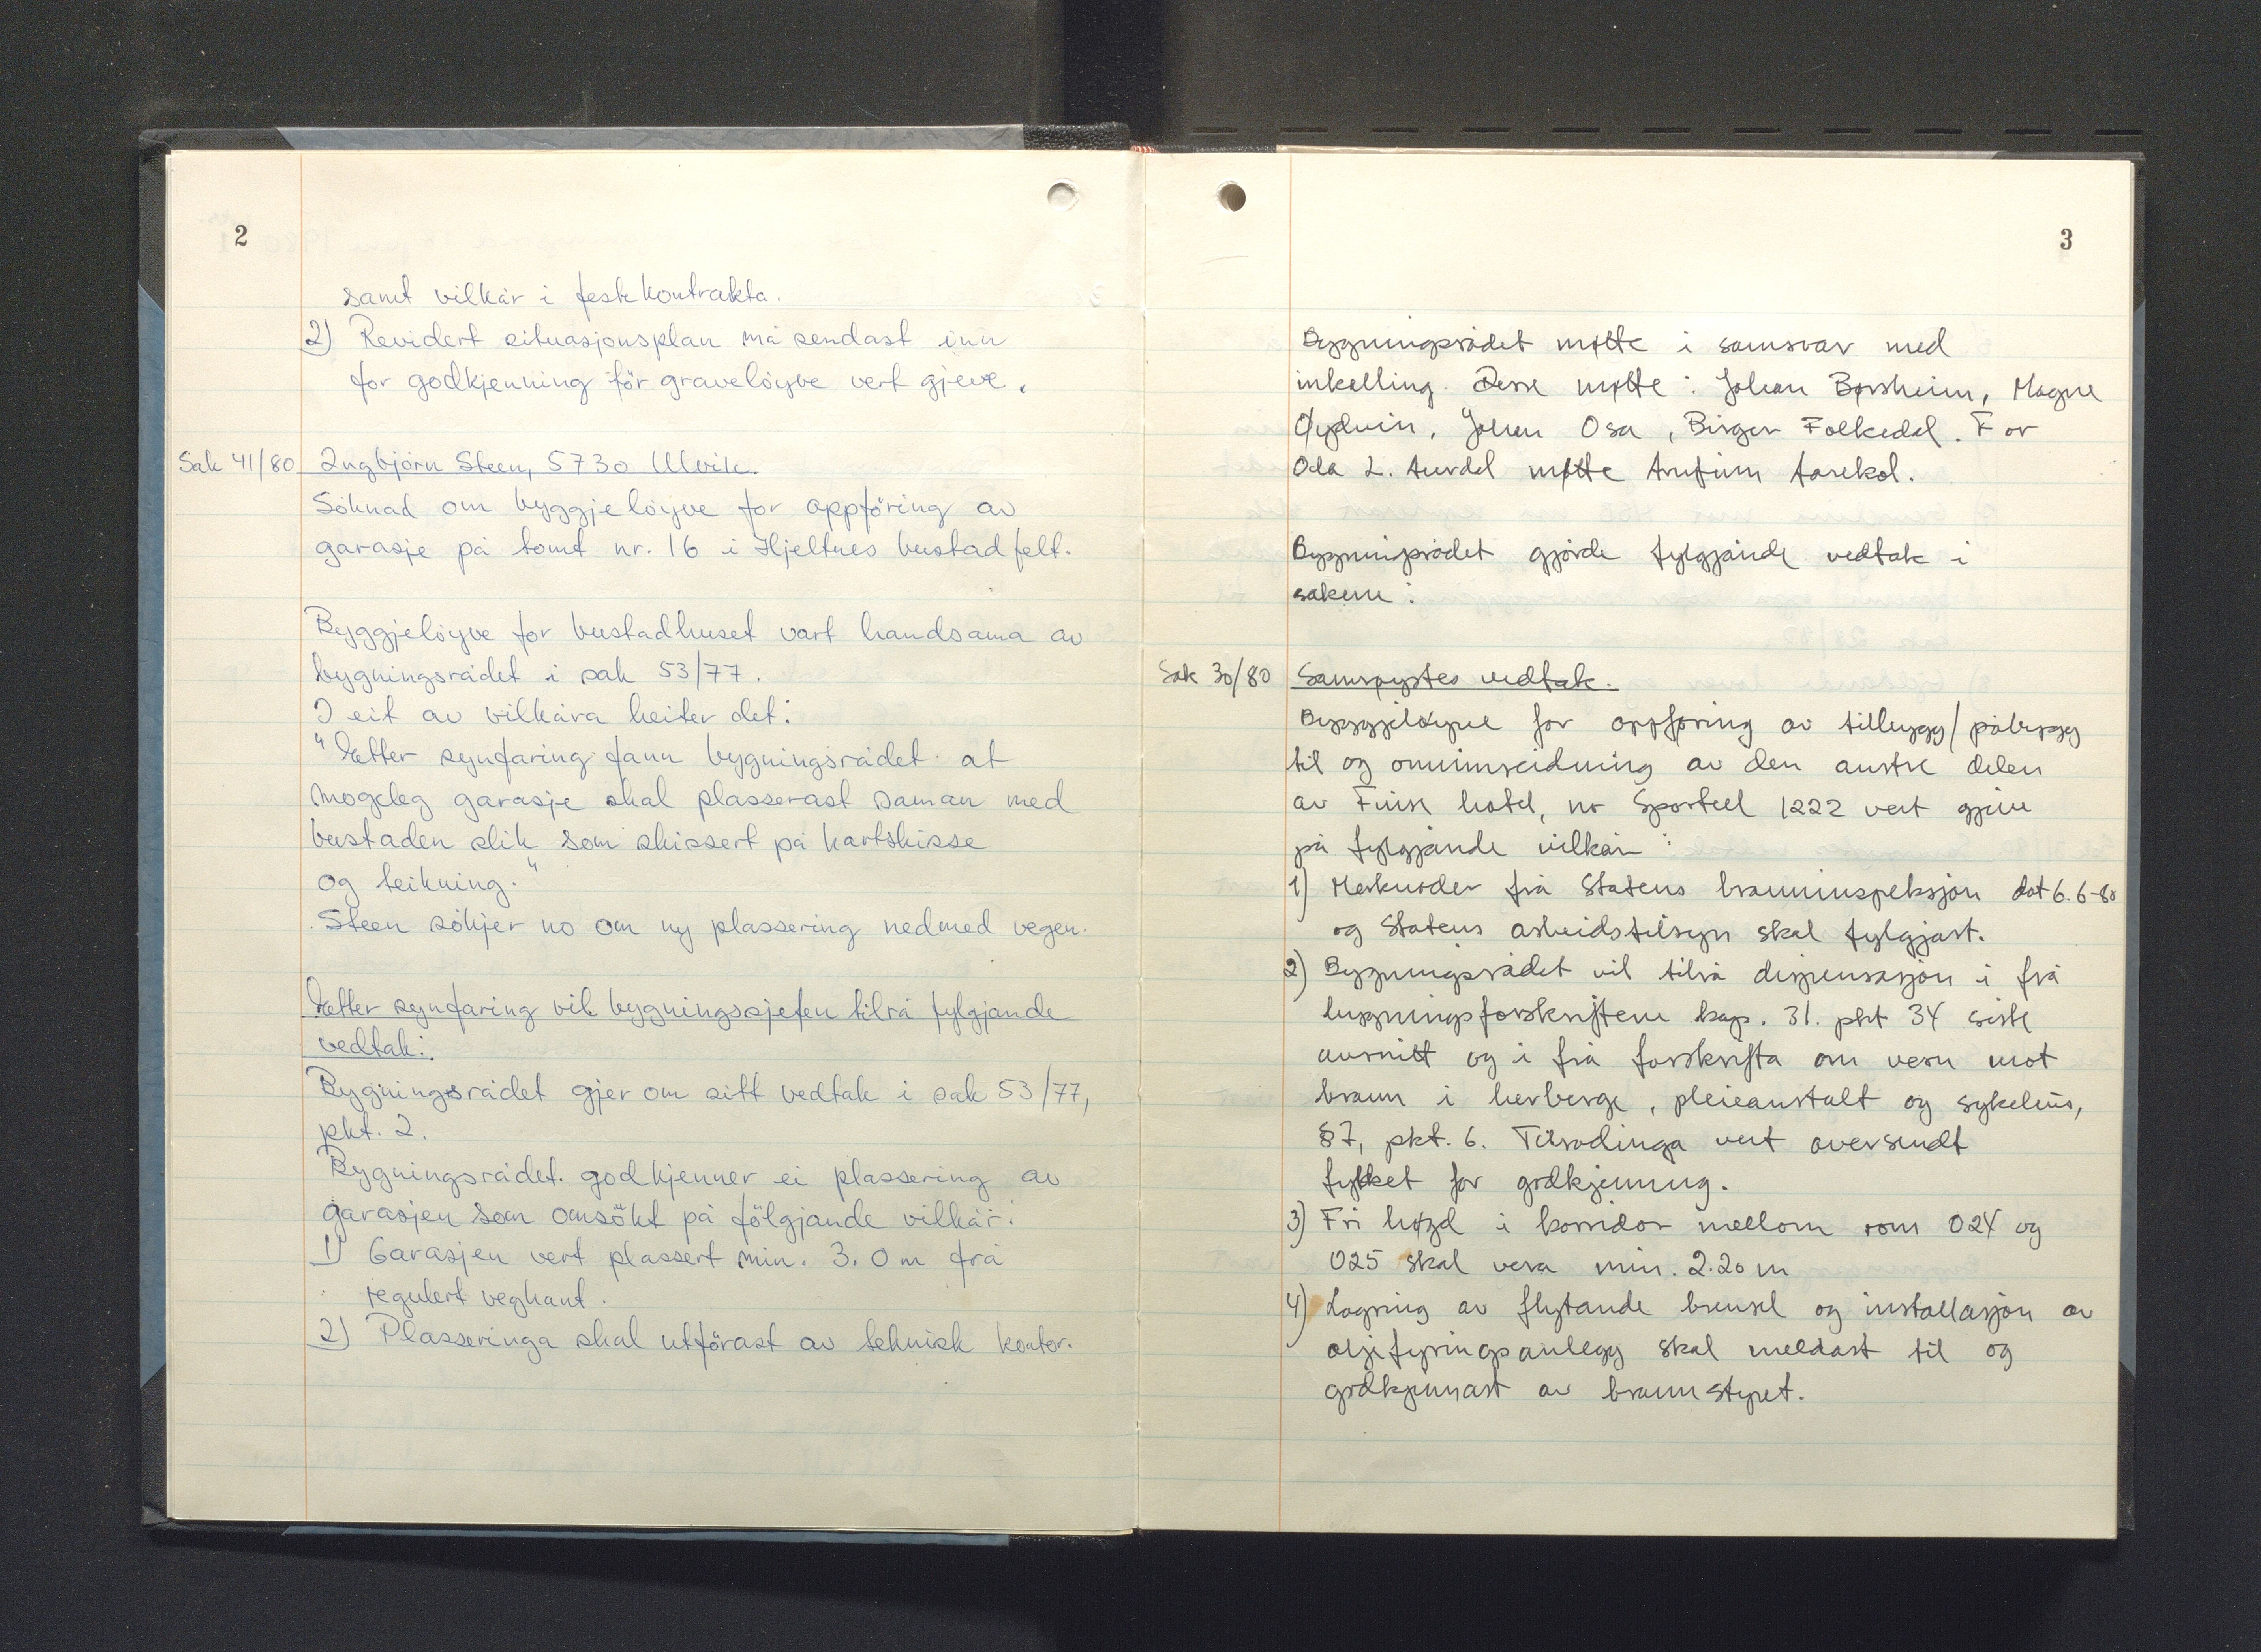 2
samt vilkår i festekontrakta.
2) Revidert situasjonsplan må sendast inn
for godkjenning för gravelöyve vert gjeve.
Sak 41/80 Ingbjörn Steen, 5730 Ulvik.
Söknad om byggjelöyve for oppföring av
garasje på tomt nr. 16 i Hjeltnes bustadfelt.
Byggjelöyve for bustadhuset vart handsama av
bygningsrådet i sak 53/77.
I eit av vilkåra heiter det:
"Etter synfaring fann bygningsrådet at
mogeleg garasje skal plasserast saman med
bustaden slik som skissert på kartskisse
og teikning."
Steen sökjer no om ny plassering nedmed vegen.
Etter synfaring vil bygningssjefen tilrå fylgjande
vedtak:
Bygningsrådet gjer om sitt vedtak i sak 53/77,
pkt. 2.
Bygningsrådet godkjenner ei plassering av
garasjen som omsökt på fölgjande vilkår:
1) Garasjen vert plassert min. 3.0 m frå
regulert vegkant.
2) Plasseringa skal utförast av teknisk kontor.
3
Bygningsrådet møtte i samsvar med
inkalling. Desse møtte: Johan Børsheim, Magne
Øydvin, Johan Osa, Birger Folkedal. For
Oda L. Aurdal møtte Arnfinn
Bygningsrådet gjorde fylgjande vedtak i
sakene:
Sak 30/80 Samrøystes vedtak.
Byggjeløyve for oppføring av tilbygg/påbygg
til og ominnreidning av den austre delen
av Finse hotel, no Sportell 1222 vert gjeve
på fylgjande vilkår:
1) Merknader frå Statens branninspeksjon dat 6.6-80
og Statens arbeidstilsyn skal fylgjast.
2) Bygningsrådet vil tilrå dispensasjon i frå
bygningsforskriftene kap. 31. pkt 34 siste
avsnitt og i frå forskrifta om vern mot
brann i herberge, pleieanstalt og sykehus,
§7, pkt. 6. Tilrådinga vert oversendt
fylket for godkjenning.
3) Fri høgd i korridor mellom rom 024 og
025 skal vera min. 2.20 m
4) Lagring av flytande brensel og installasjon av
oljefyringsanlegg skal meldast til og
godkjennast av brannstyret.